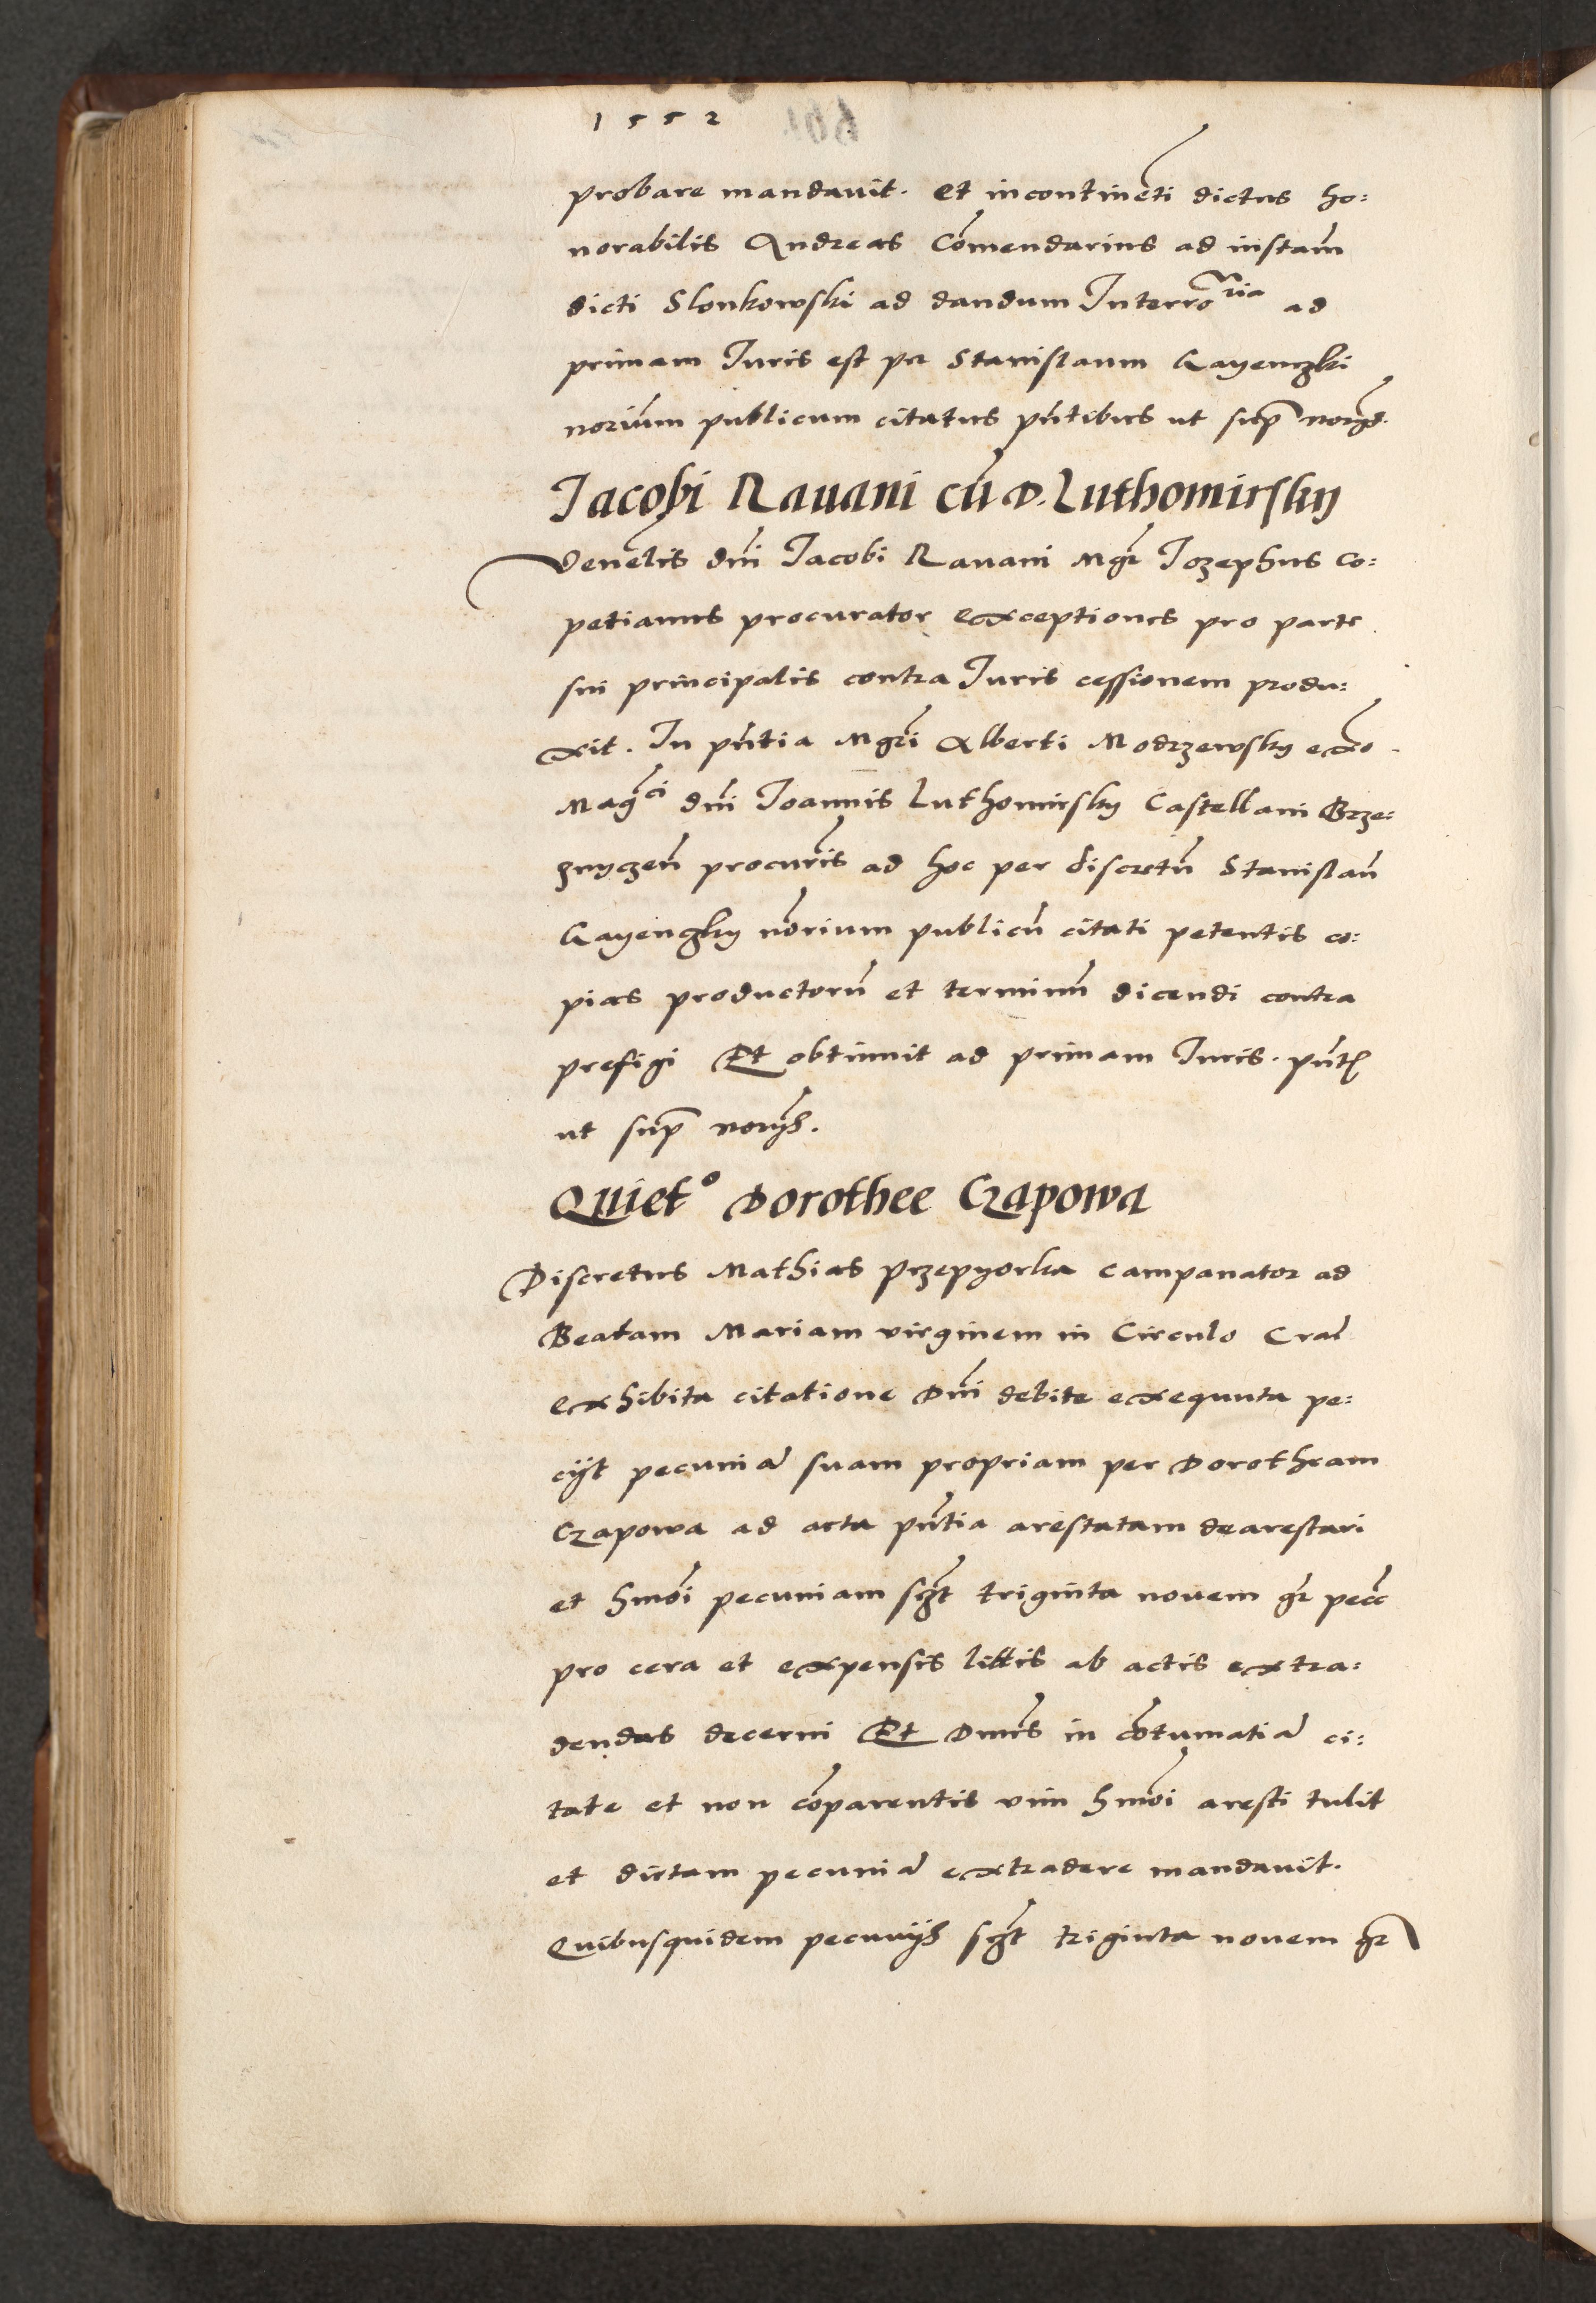 1552
probare mandavit. Et incontinēti dictus ho:
norabilis Andreas Cōmendarius ad instam̄
dicti Slonkowski ad dandum Interro^ria ad
primam Iuris est per Stanislaum Gayenczki
norium̄ publicum citatus pn̄tibus ut sup̄
Jacobi Ravani cū D. Luthomirsky
Venēlis dn̄i Iacobi Ravani Mgr̄ Iozephus Co:
petianus procurator exceptiones pro parte
sui principalis contra Iuris cessionem produ:
xit. In pn̄tia Mgr̄i Alberti Modrzewsky ex̄o
Maḡci dn̄i Joannis Luthomirsky Castellani Brze:
znyczen̄ procur̄is ad hoc per discretū Stanislaū
Gayenczky nōrium publicū citati petentis co:
pias productorū et terminū dicendi contra
prefigi Et obtinuit ad primam Iuris. pn̄t
ut sup̄
Quiet° Dorothee Czapowa
Discretus Mathias Przepyorka campanator ad
Beatam Mariam virginem in Circulo Crac̄
exhibita citatione Dn̄i debite exequuta pe:
cijt pecuniā suam propriam per Dorotheam
Czapowa ad acta pn̄tia arestatam dearestari
et hmōi pecuniam sc̄t triginta novem gr̄ pecc̄
pro cera et expensis littis ab actis extra:
dendas decerni Et Dnūs in cōtumatiā ci:
tate et non cōparentis vim hmōi aresti tulit
et dictam pecuniā extradere mandavit.
Quibusquidem pecunijs sc̄t triginta novem gr̄